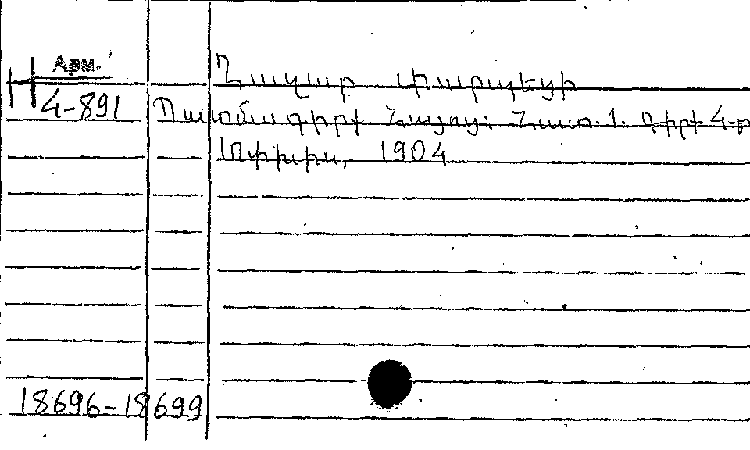 Арм.
Ղազար Փարպեցի
4-891 Պատմագիրք Հայոց: Հատ. 1. Գիրք 4-ր
Թիֆլիս, 1904
18696-18699